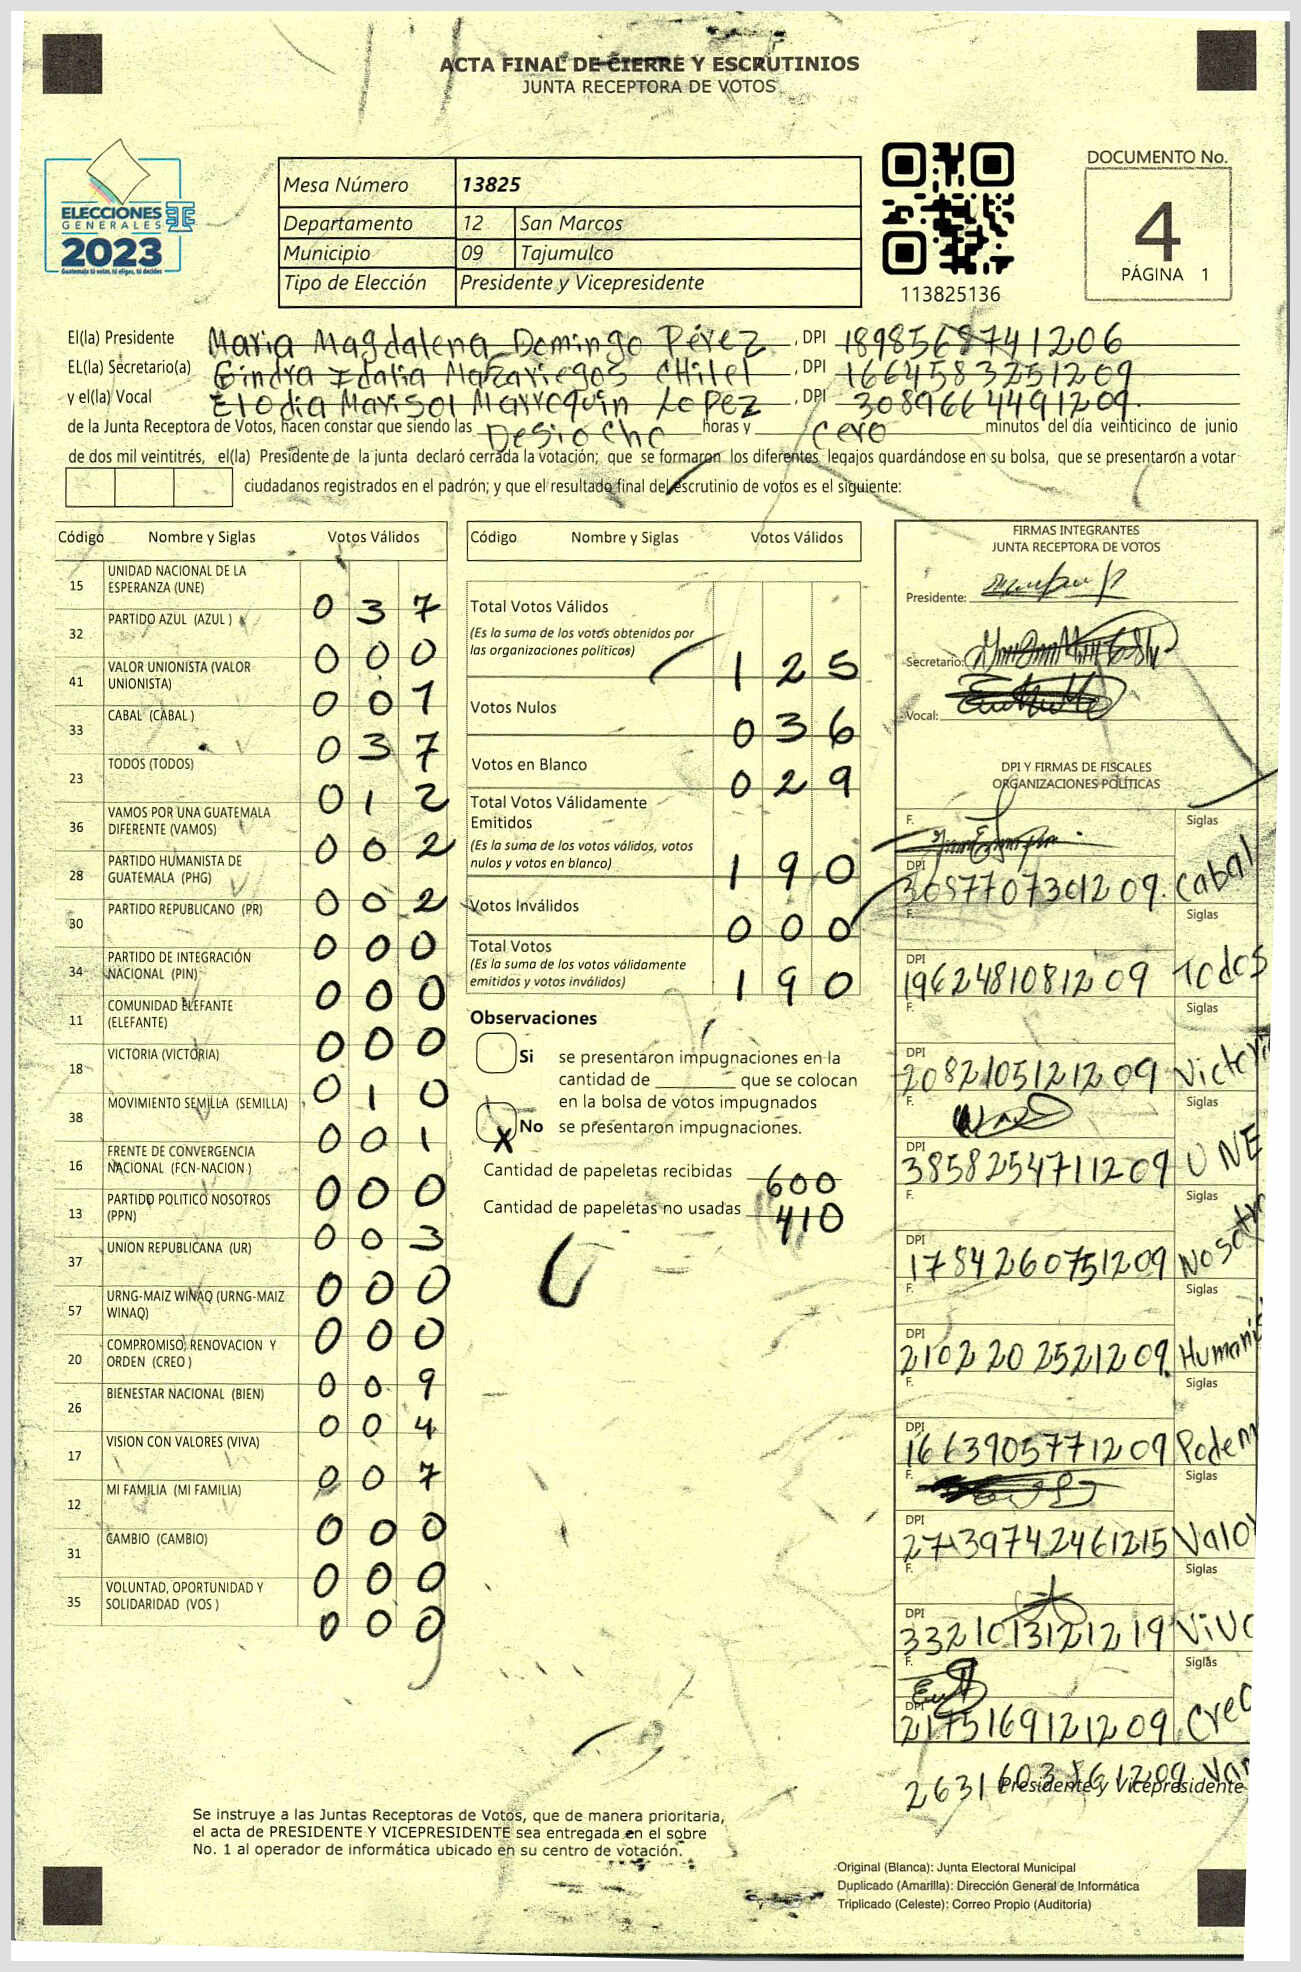 ACTA FINAL DE CIERRE Y ESCRUTINIOS
JUNTA RECEPTORA DE VOTOS
ELECCIONES
GENERALES
2023
Guatemala tú votas, tú eliges, tú decides
Mesa Número 13825
Departamento 12 San Marcos
Municipio 09 Tajumulco
Tipo de Elección Presidente y Vicepresidente
113825136
DOCUMENTO No.
4
PÁGINA 1
El(la) Presidente Maria Magdalena Domingo Pérez, DPI 1898568741206
EL(la) Secretario(a) Gindra Idalia Mazariegos CHilel, DPI 1664583251209
y el(la) Vocal Elodia Marisol Marroquin Lopez, DPI 3089664491209.
de la Junta Receptora de Votos, hacen constar que siendo las Desiocho horas y cero minutos del día veinticinco de junio
de dos mil veintitrés, el(la) Presidente de la junta declaró cerrada la votación; que se formaron los diferentes legajos guardándose en su bolsa, que se presentaron a votar
ciudadanos registrados en el padrón; y que el resultado final del escrutinio de votos es el siguiente:
Código Nombre y Siglas Votos Válidos
15 UNIDAD NACIONAL DE LA ESPERANZA (UNE) 0 3 7
32 PARTIDO AZUL (AZUL ) 0 0 0
41 VALOR UNIONISTA (VALOR UNIONISTA) 0 0 1
33 CABAL (CABAL ) 0 3 7
23 TODOS (TODOS) 0 1 2
36 VAMOS POR UNA GUATEMALA DIFERENTE (VAMOS) 0 0 2
28 PARTIDO HUMANISTA DE GUATEMALA (PHG) 0 0 2
30 PARTIDO REPUBLICANO (PR) 0 0 0
34 PARTIDO DE INTEGRACIÓN NACIONAL (PIN) 0 0 0
11 COMUNIDAD ELEFANTE (ELEFANTE) 0 0 0
18 VICTORIA (VICTORIA) 0 1 0
38 MOVIMIENTO SEMILLA (SEMILLA) 0 0 1
16 FRENTE DE CONVERGENCIA NACIONAL (FCN-NACION ) 0 0 0
13 PARTIDO POLITICO NOSOTROS (PPN) 0 0 3
37 UNION REPUBLICANA (UR) 0 0 0
57 URNG-MAIZ WINAQ (URNG-MAIZ WINAQ) 0 0 0
20 COMPROMISO, RENOVACION Y ORDEN (CREO ) 0 0 9
26 BIENESTAR NACIONAL (BIEN) 0 0 4
17 VISION CON VALORES (VIVA) 0 0 7
12 MI FAMILIA (MI FAMILIA) 0 0 0
31 CAMBIO (CAMBIO) 0 0 0
35 VOLUNTAD, OPORTUNIDAD Y SOLIDARIDAD (VOS ) 0 0 0
Código Nombre y Siglas Votos Válidos
Total Votos Válidos
(Es la suma de los votos obtenidos por
las organizaciones políticas) 1 2 5
Votos Nulos 0 3 6
Votos en Blanco 0 2 9
Total Votos Válidamente
Emitidos
(Es la suma de los votos válidos, votos
nulos y votos en blanco) 1 9 0
Votos Inválidos 0 0 0
Total Votos
(Es la suma de los votos válidamente
emitidos y votos inválidos) 1 9 0
Observaciones
Si se presentaron impugnaciones en la
cantidad de ________ que se colocan
en la bolsa de votos impugnados
X No se presentaron impugnaciones.
Cantidad de papeletas recibidas 600
Cantidad de papeletas no usadas 410
FIRMAS INTEGRANTES
JUNTA RECEPTORA DE VOTOS
Presidente:
Secretario:
Vocal:
DPI Y FIRMAS DE FISCALES
ORGANIZACIONES POLÍTICAS
F. Siglas
DPI 3087707301209. Cabal
F. Siglas
DPI 1962481081209 Todos
F. Siglas
DPI 2082105121209 Victori
F. Siglas
DPI 3858254711209 UNE
F. Siglas
DPI 1784260751209 Nosotr
F. Siglas
DPI 2102202521209. Humani
F. Siglas
DPI 1663905771209 Podem
F. Siglas
DPI 2739742461215 Valor
F. Siglas
DPI 3321013121219 Viva
F. Siglas
DPI 2175169121209 Creo
2631603861209 Vam
Presidente y Vicepresidente
Se instruye a las Juntas Receptoras de Votos, que de manera prioritaria,
el acta de PRESIDENTE Y VICEPRESIDENTE sea entregada en el sobre
No. 1 al operador de informática ubicado en su centro de votación.
Original (Blanca): Junta Electoral Municipal
Duplicado (Amarilla): Dirección General de Informática
Triplicado (Celeste): Correo Propio (Auditoría)